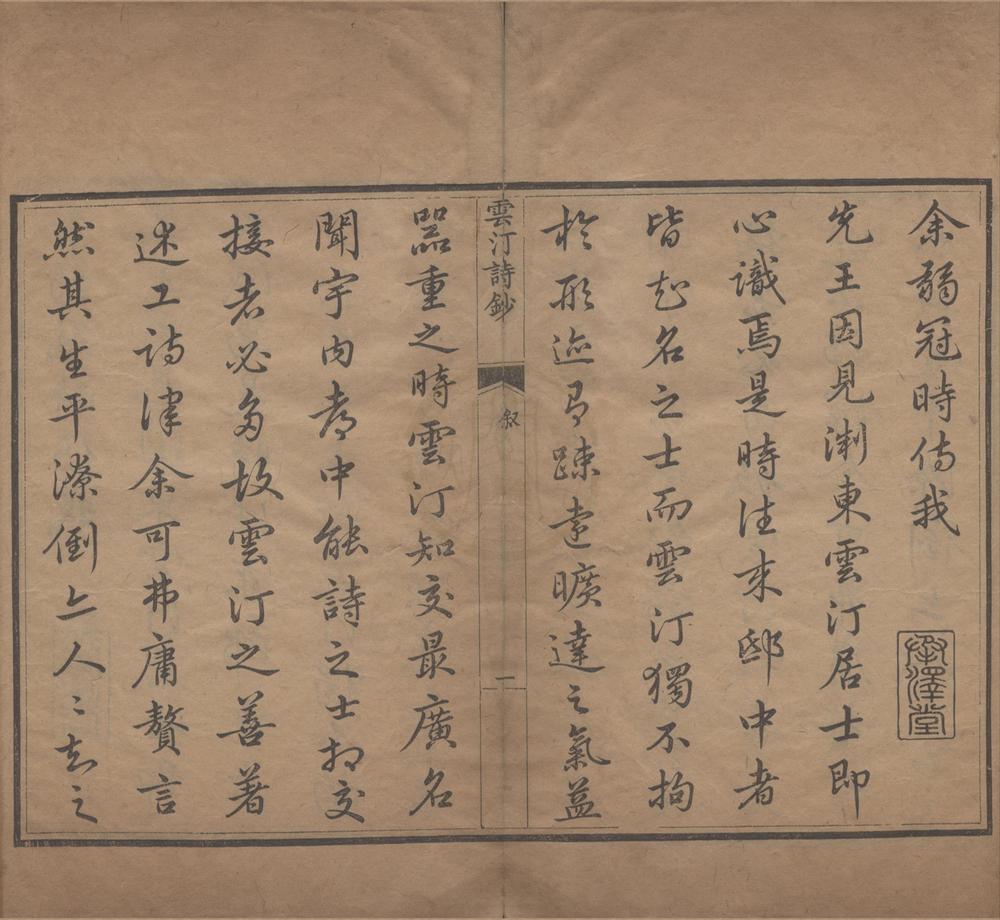 余弱冠時侍我
承澤堂
先王因見淛東雲汀居士即
心識焉是時往来邸中者
皆知名之士而雲汀獨不拘
於形迹踈遠曠達之氣益
雲汀詩鈔
叙
一
噐重之時雲汀知交最廣名
聞宇内都中能詩之士相交
接者必多故雲汀之善著
述工詩律余可弗庸贅言
然其生平潦倒亦人〻知之